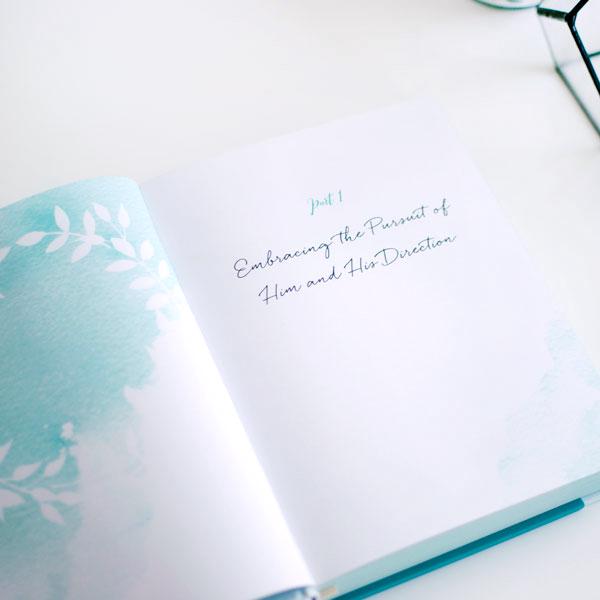 Part 1
Embracing the Pursuit of
Him and His Direction